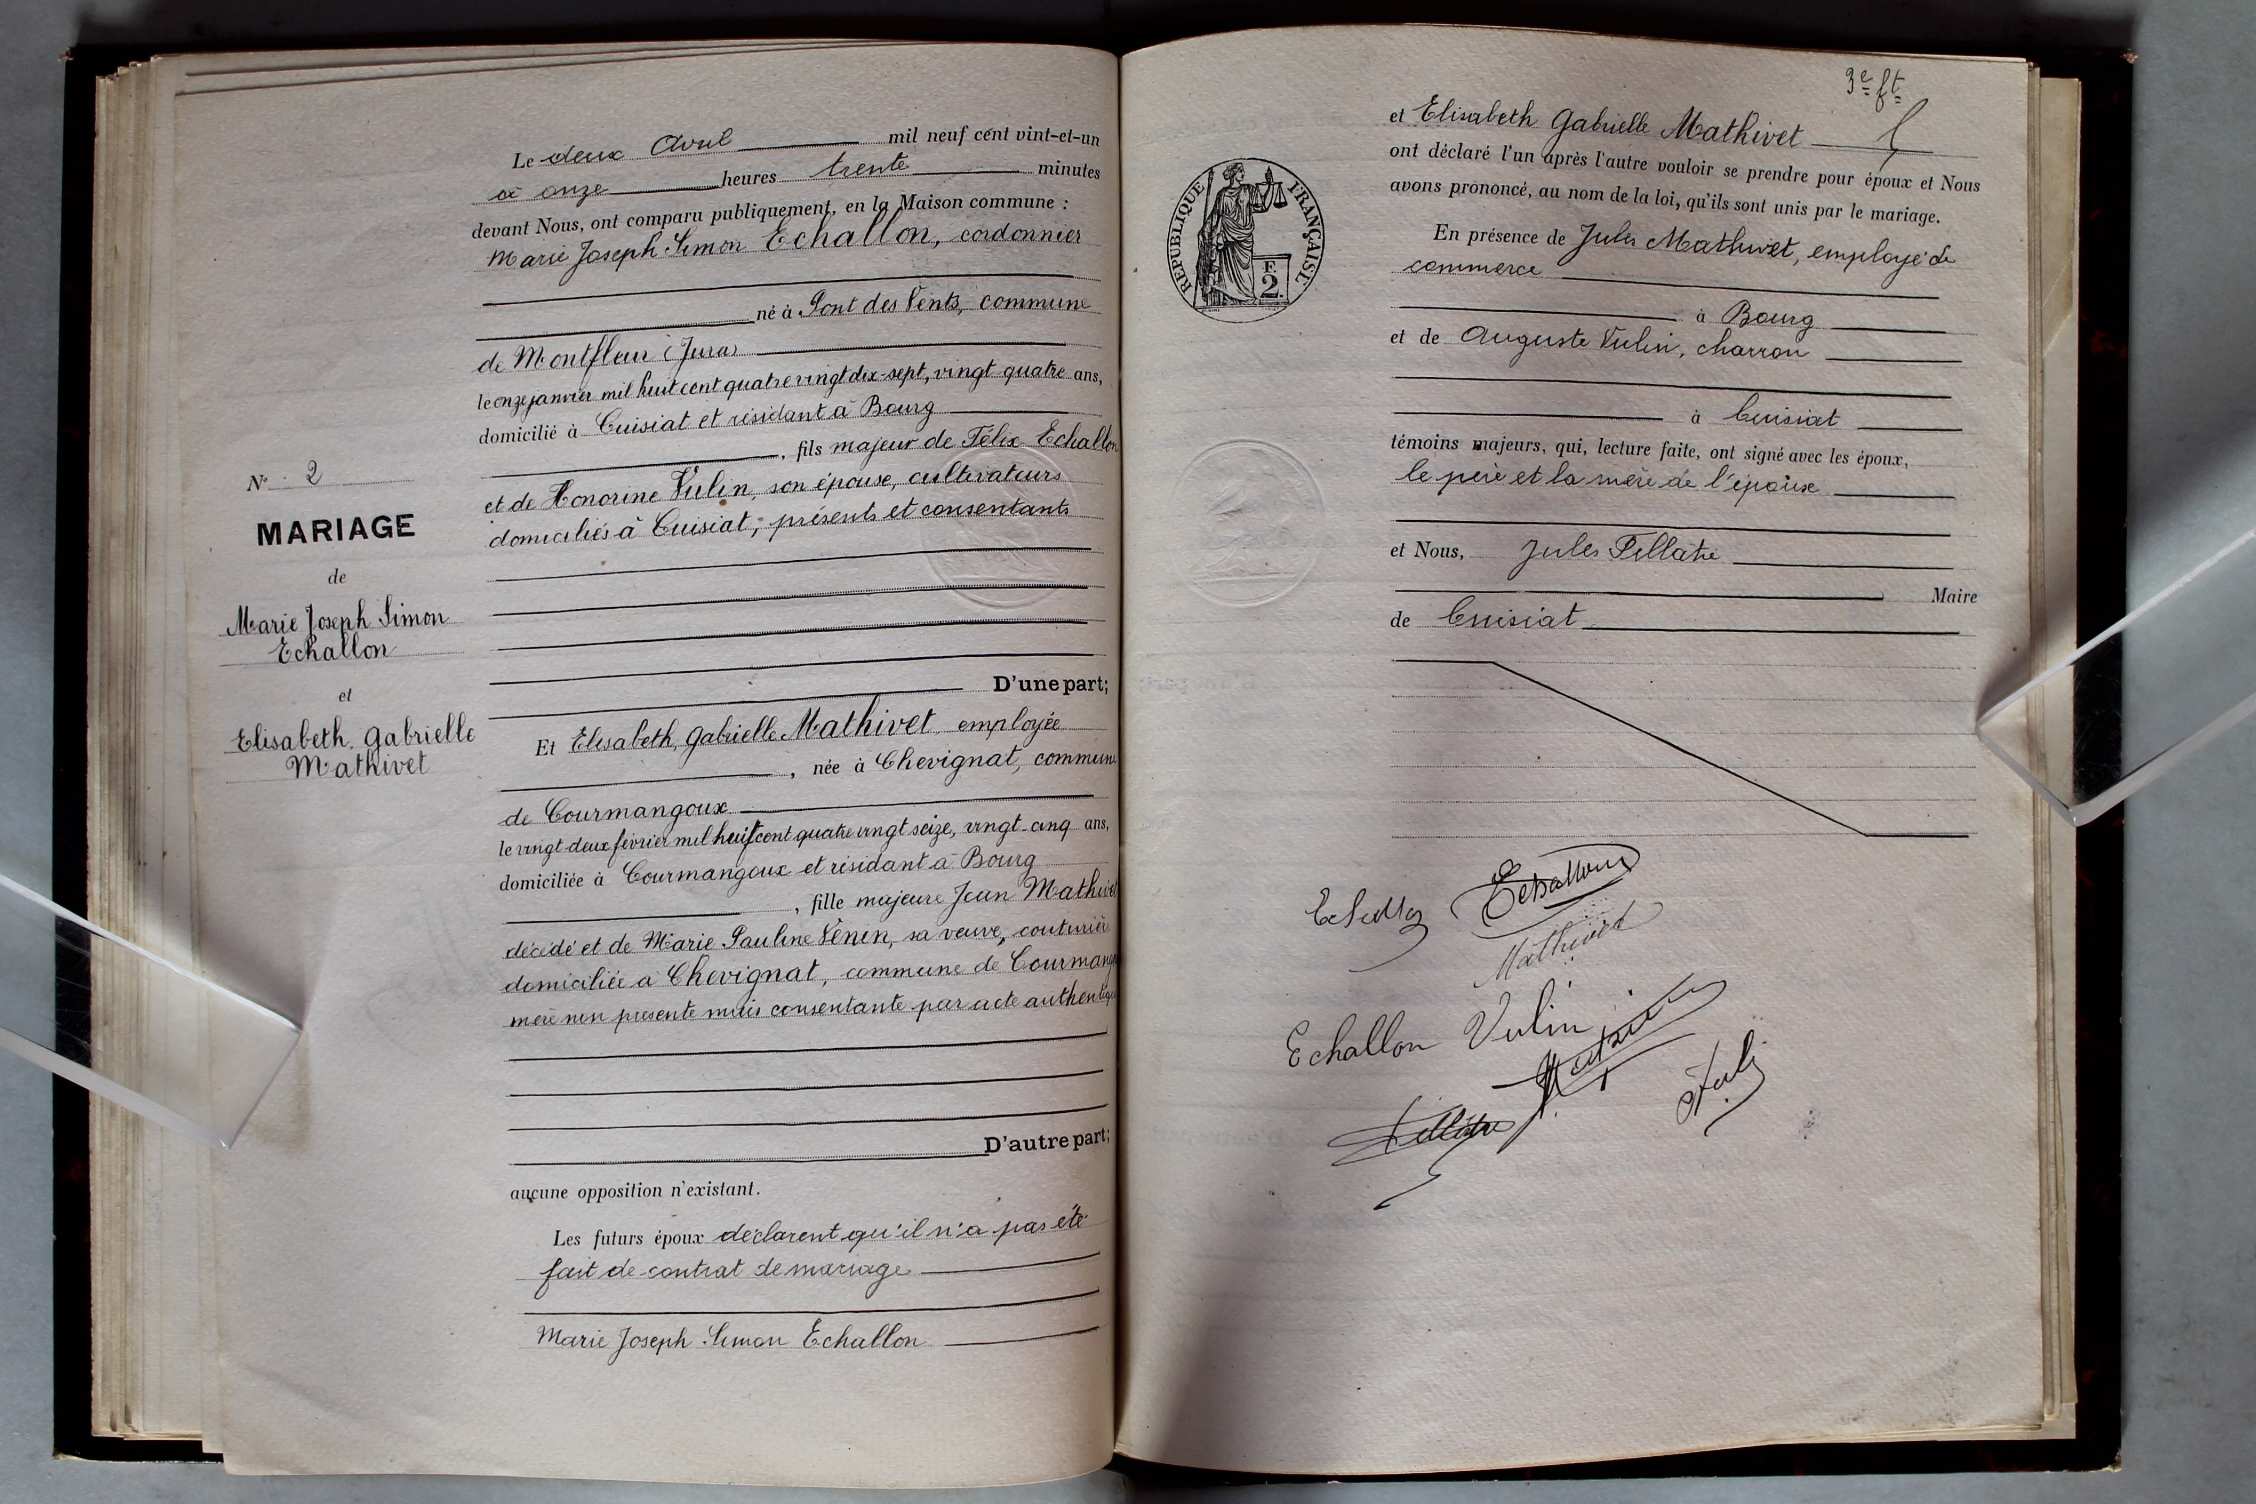 Le deux Avril mil neuf cent vint-et-un
à onze heures trente minutes
devant Nous, ont comparu publiquement, en la Maison commune :
Marie Joseph Simon Echallon, cordonnier
né à Pont des Vents, commune
de Montfleur (Jura)
le onze janvier mil huit cent quatre vingt dix-sept, vingt quatre ans,
domicilié à Cuisiat et résidant à Bourg
, fils majeur de Félix Echallon
et de Honorine Vulin, son épouse, cultivateurs
domiciliés à Cuisiat, présents et consentants
D'une part;
N° 2
MARIAGE
de
Marie Joseph Simon
Echallon
et
Elisabeth Gabrielle
Mathivet
Et Elisabeth, Gabrielle Mathivet employée
, née à Chevignat, commune
de Courmangoux
le vingt-deux février mil huit cent quatre vingt seize, vingt-cinq ans,
domiciliée à Courmangoux et résidant à Bourg
, fille majeure Jean Mathivet
décédé et de Marie Pauline Vénin, sa veuve, couturière
domiciliée à Chevignat, commune de Courmang
mère non présente mais consentante par acte authentique
D'autre part;
aucune opposition n'existant.
Les futurs époux déclarent qu'il n'a pas été
fait de contrat de mariage
Marie Joseph Simon Echallon
3e ft
et Elisabeth Gabrielle Mathivet
ont déclaré l'un après l'autre vouloir se prendre pour époux et Nous
avons prononcé, au nom de la loi, qu'ils sont unis par le mariage.
REPUBLIQUE FRANÇAISE
F.
2
En présence de Jules Mathivet, employé de
commerce
à Bourg
et de Auguste Vulin, charron
à Cuisiat
témoins majeurs, qui, lecture faite, ont signé avec les époux,
le père et la mère de l'époux
et Nous, Jules Pillatre
Maire
de Cuisiat
Echallon
Mathivet
Echallon Vulin